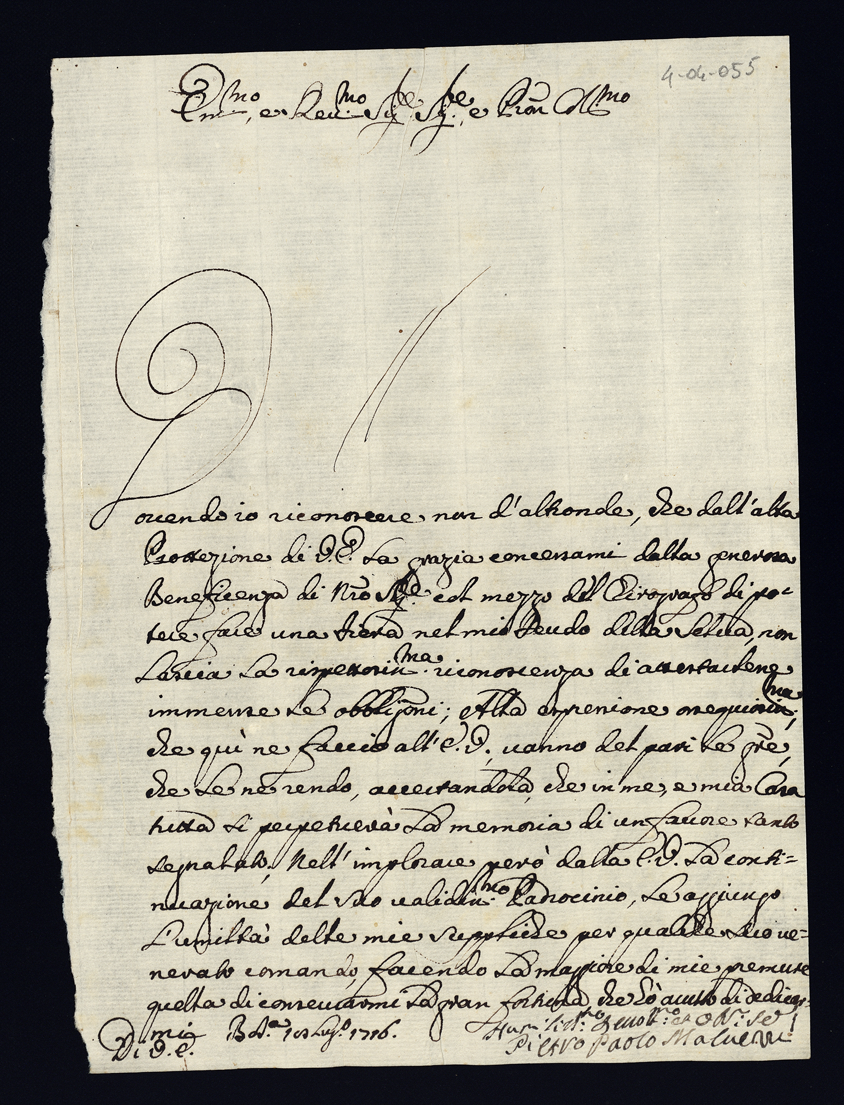 4-04-055
Em.mo, e Reu.mo Sig.re Sig.re, e Pron Col.mo
Douendo io riconoscere non d'altronde, che dall'alta
Protezione di V.E. La grazia concessami dalla generosa
Beneficenza di Nro Sig.re col mezzo del Chirografo di po=
tere fare una fiera nel mio feudo della Selua, non
Lascia La rispettosis.ma riconoscenza di attestarlene
immense Le obbligoni; Alla espressione ossequiosis.ma,
che quì ne faccio all'E.V., uanno del pari Le gre,
che Le ne rendo, accertandola, che in me, e mia Casa
tutta si perpetuerà La memoria di un fauore tanto
segnalato. Nell'implorare però dalla E.V. La conti=
nuazione del suo ualidis.mo Padrocinio, Le aggiungo
L'umiltà delle mie suppliche per qualche suo ue=
nerato comando, facendo La maggiore di mie premure
quella di conseruarmi La gran fortuna, che hò auuto di dedicar=
mi
Di V.E. Bol.a Lug.o 1716.
Pietro Paolo Maluezzi